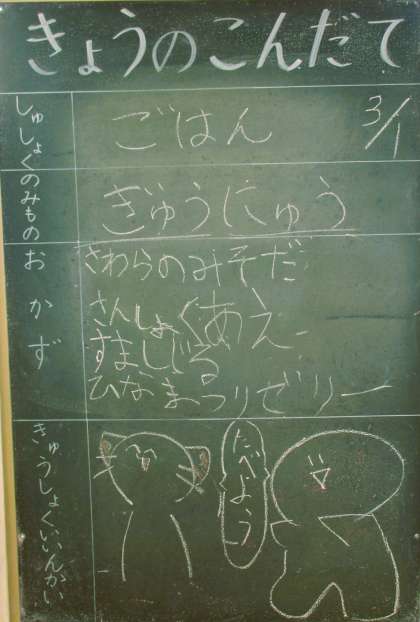 きょうのこんだて
しゅしょく
ごはん
3/1
のみもの
ぎゅうにゅう
おかず
さわらのみそだ
さんしょくあえ
すましじる
ひなまつりゼリー
きゅうしょくいいんかい
たべよう